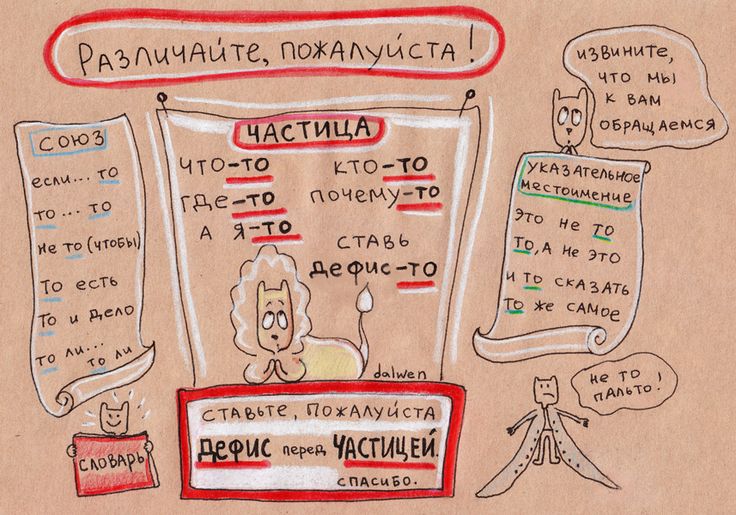 Различайте, пожалуйста!
СОЮЗ
если... то
то ... то
не то (чтобы)
То есть
То и дело
то ли...
то ли
СЛОВАРЬ
ЧАСТИЦА
что-то
кто-то
где-то
почему-то
а я-то
ставь
дефис-то
dalwen
Ставьте, пожалуйста
дефис перед ЧАСТИЦЕЙ.
спасибо.
извините,
что мы
к вам
обращаемся
указательное
местоимение
это не то
то, а не это
и то сказать
то же самое
не то
пальто!